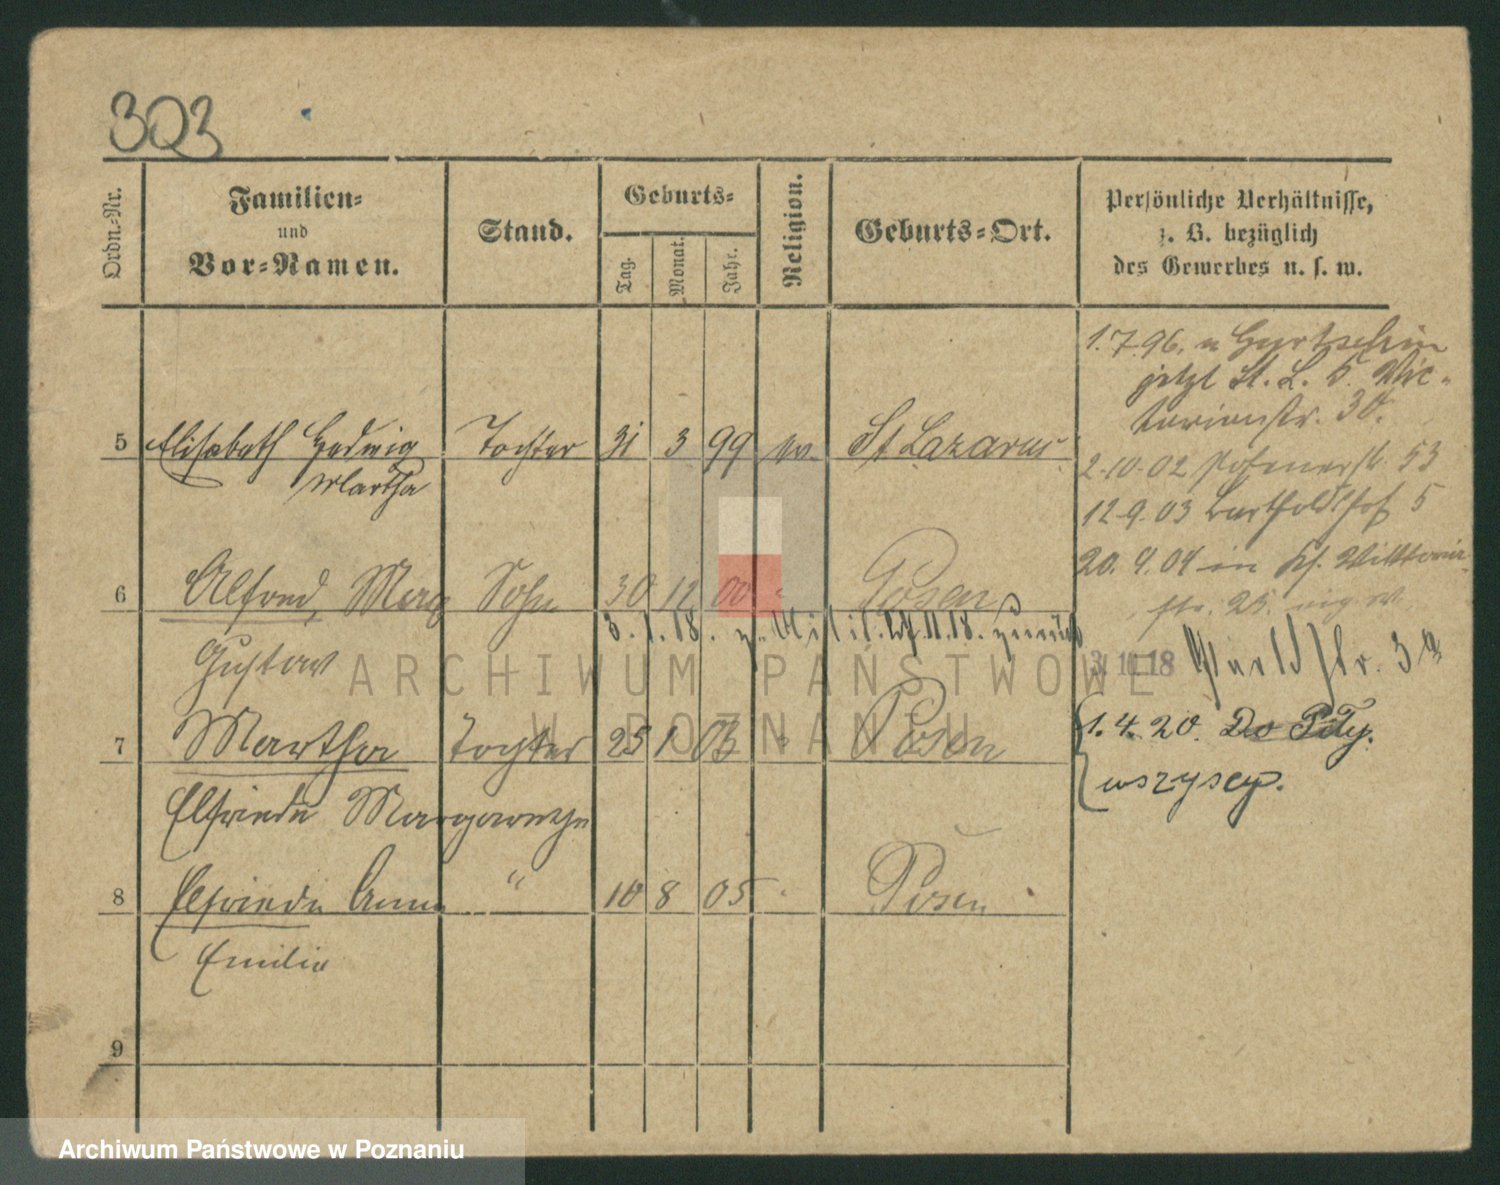 303
Ordn.-Nr.
Familien-
und
Vor-Namen.
Stand.
Geburts-
Tag.
Monat.
Jahr.
Religion.
Geburts-Ort.
Persönliche Verhältnisse,
z. B. bezüglich
des Gewerbes u. s. w.
1.7.96.
jetzt St. L. Vic-
torianstr. 30.
5 Elisabeth Hedwig Tochter 31 3 99 ev St Lazarus
Martha
2.10.02 Posenerstr. 53
12.9.03 Bartholdshof 5
6 Alfred, Max Sohn 30 12 00 " Posen
20.9.04 in
str. 25.
3.1.18. z. Milit. 24.11.18. zurück
Gustav
3.10.18
7 Martha Tochter 25 1 03 " Posen
1.4.20. Do
wszyscy.
Elfriede Margarethe
8 Elfriede Anna " 10 8 05 " Posen
Emilie
9
ARCHIWUM PAŃSTWOWE
W POZNANIU
Archiwum Państwowe w Poznaniu